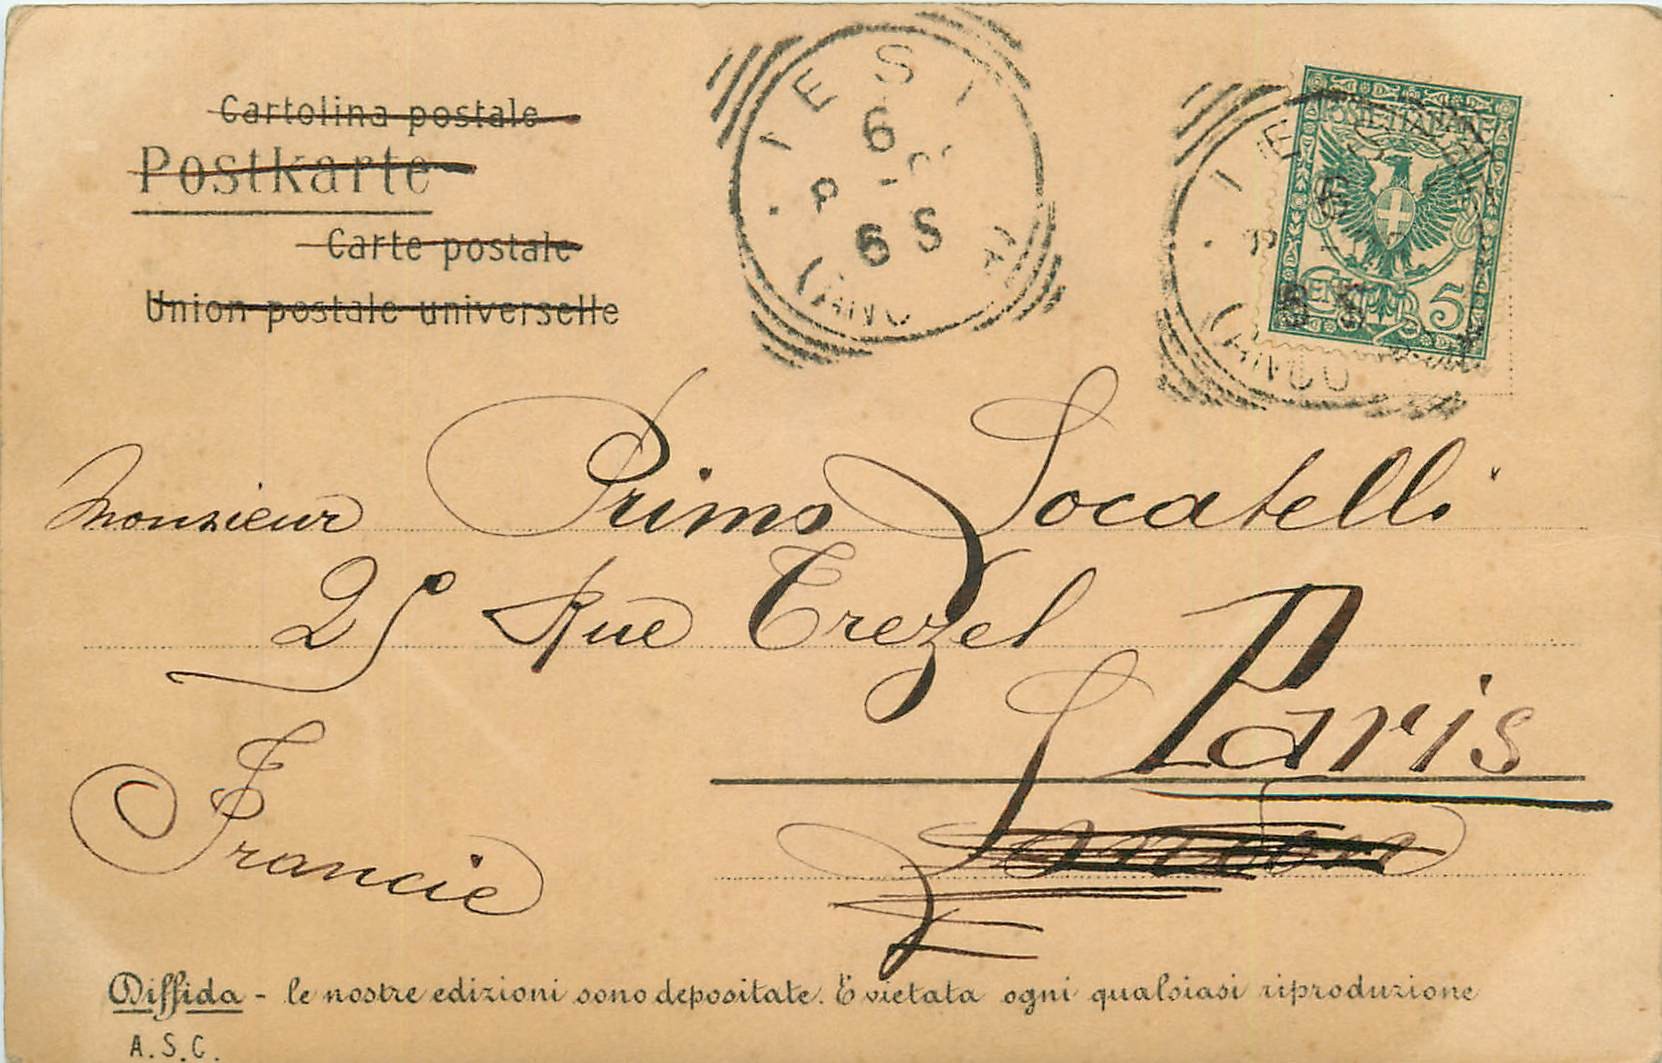 Cartolina postale
Postkarte
Carte postale
Union postale universelle
IESI
6
6 S
(ANCO
POSTE ITALIANE
CENT. 5
IESI
6 S
(ANCO
Monsieur Primo Locatelli
25 Rue Trezel
Paris
London
Francie
Diffida - le nostre edizioni sono depositate. E vietata ogni qualsiasi riproduzione
A.S.C.